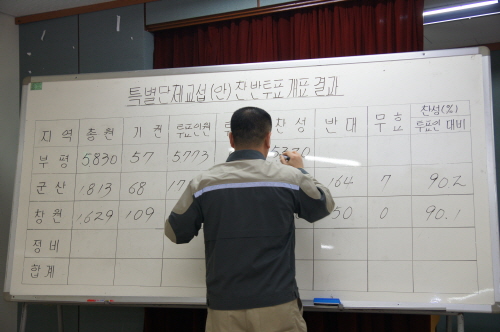 특별단체교섭(안)찬반투표개표결과
지역 총원 기권 투표인원 찬성 반대 무효 찬성(%)
투표인 대비
부평 5,830 57 5,773
군산 1,813 68 164 7 90.2
창원 1,629 109 50 0 90.1
정비
합계